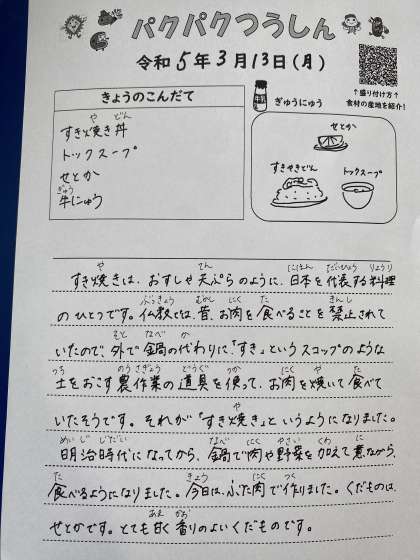 パクパクつうしん
令和5年3月13日(月)
きょうのこんだて
すき焼き丼
トックスープ
せとか
牛にゅう
ぎゅうにゅう
↑盛り付け方↑
食材の産地を紹介!
せとか
すきやきどん
トックスープ
すき焼きは、おすしや天ぷらのように、日本を代表する料理
のひとつです。仏教では、昔、お肉を食べることを禁止されて
いたので、外で鍋の代わりに、「すき」というスコップのような
土をおこす農作業の道具を使って、お肉を焼いて食べて
いたそうです。それが「すき焼き」というようになりました。
明治時代になってから、鍋で肉や野菜を加えて煮ながら、
食べるようになりました。今日は、ぶた肉で作りました。くだものは、
せとかです。とても甘く香りのよいくだものです。